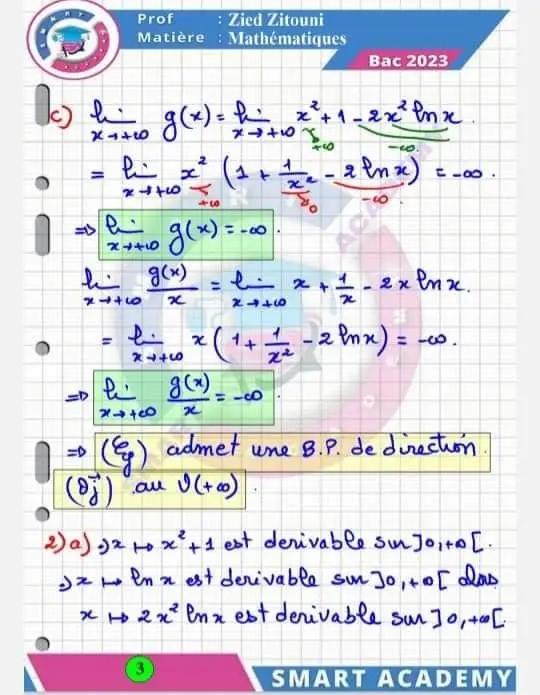 Prof : Zied Zitouni
Matière : Mathématiques
Bac 2023
c) lim x→+∞ g(x) = lim x→+∞ x² + 1 - 2x² ln x
+∞ -∞
= lim x→+∞ x² (1 + 1/x² - 2 ln x) = -∞.
+∞ 0 -∞
⇒ lim x→+∞ g(x) = -∞.
lim x→+∞ g(x)/x = lim x→+∞ x + 1/x - 2x ln x.
= lim x→+∞ x(1 + 1/x² - 2 ln x) = -∞.
⇒ lim x→+∞ g(x)/x = -∞
⇒ (Cg) admet une B.P. de direction
(Oj⃗) au V(+∞)
2) a) •) x ↦ x² + 1 est derivable sur ]0,+∞[.
•) x ↦ ln x est derivable sur ]0,+∞[ dos
x ↦ 2x² ln x est derivable sur ]0,+∞[
3
SMART ACADEMY